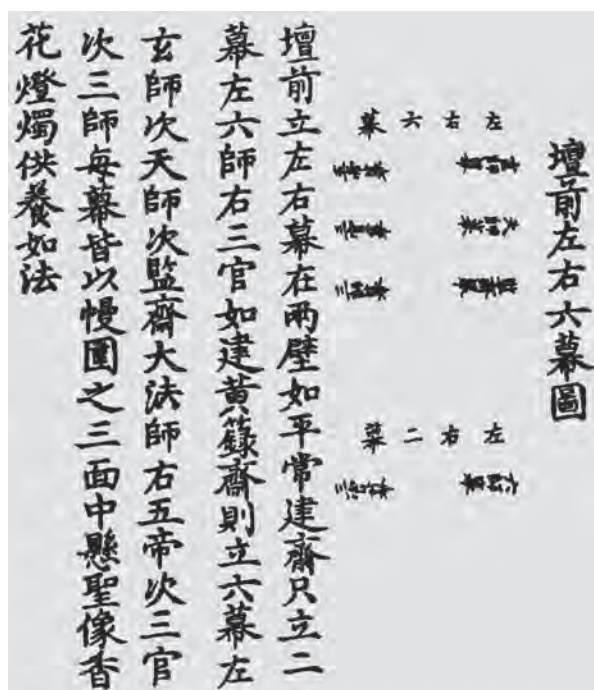 壇前左右六幕圖
左右六幕
玄師幕
五帝幕
天師幕
三官幕
監齋幕
三師幕
左右二幕
六師幕
三官幕
壇前立左右幕在兩壁如平常建齋只立二
幕左六師右三官如建黃籙齋則立六幕左
玄師次天師次監齋大法師右五帝次三官
次三師每幕皆以幔圍之三面中懸聖像香
花燈燭供養如法